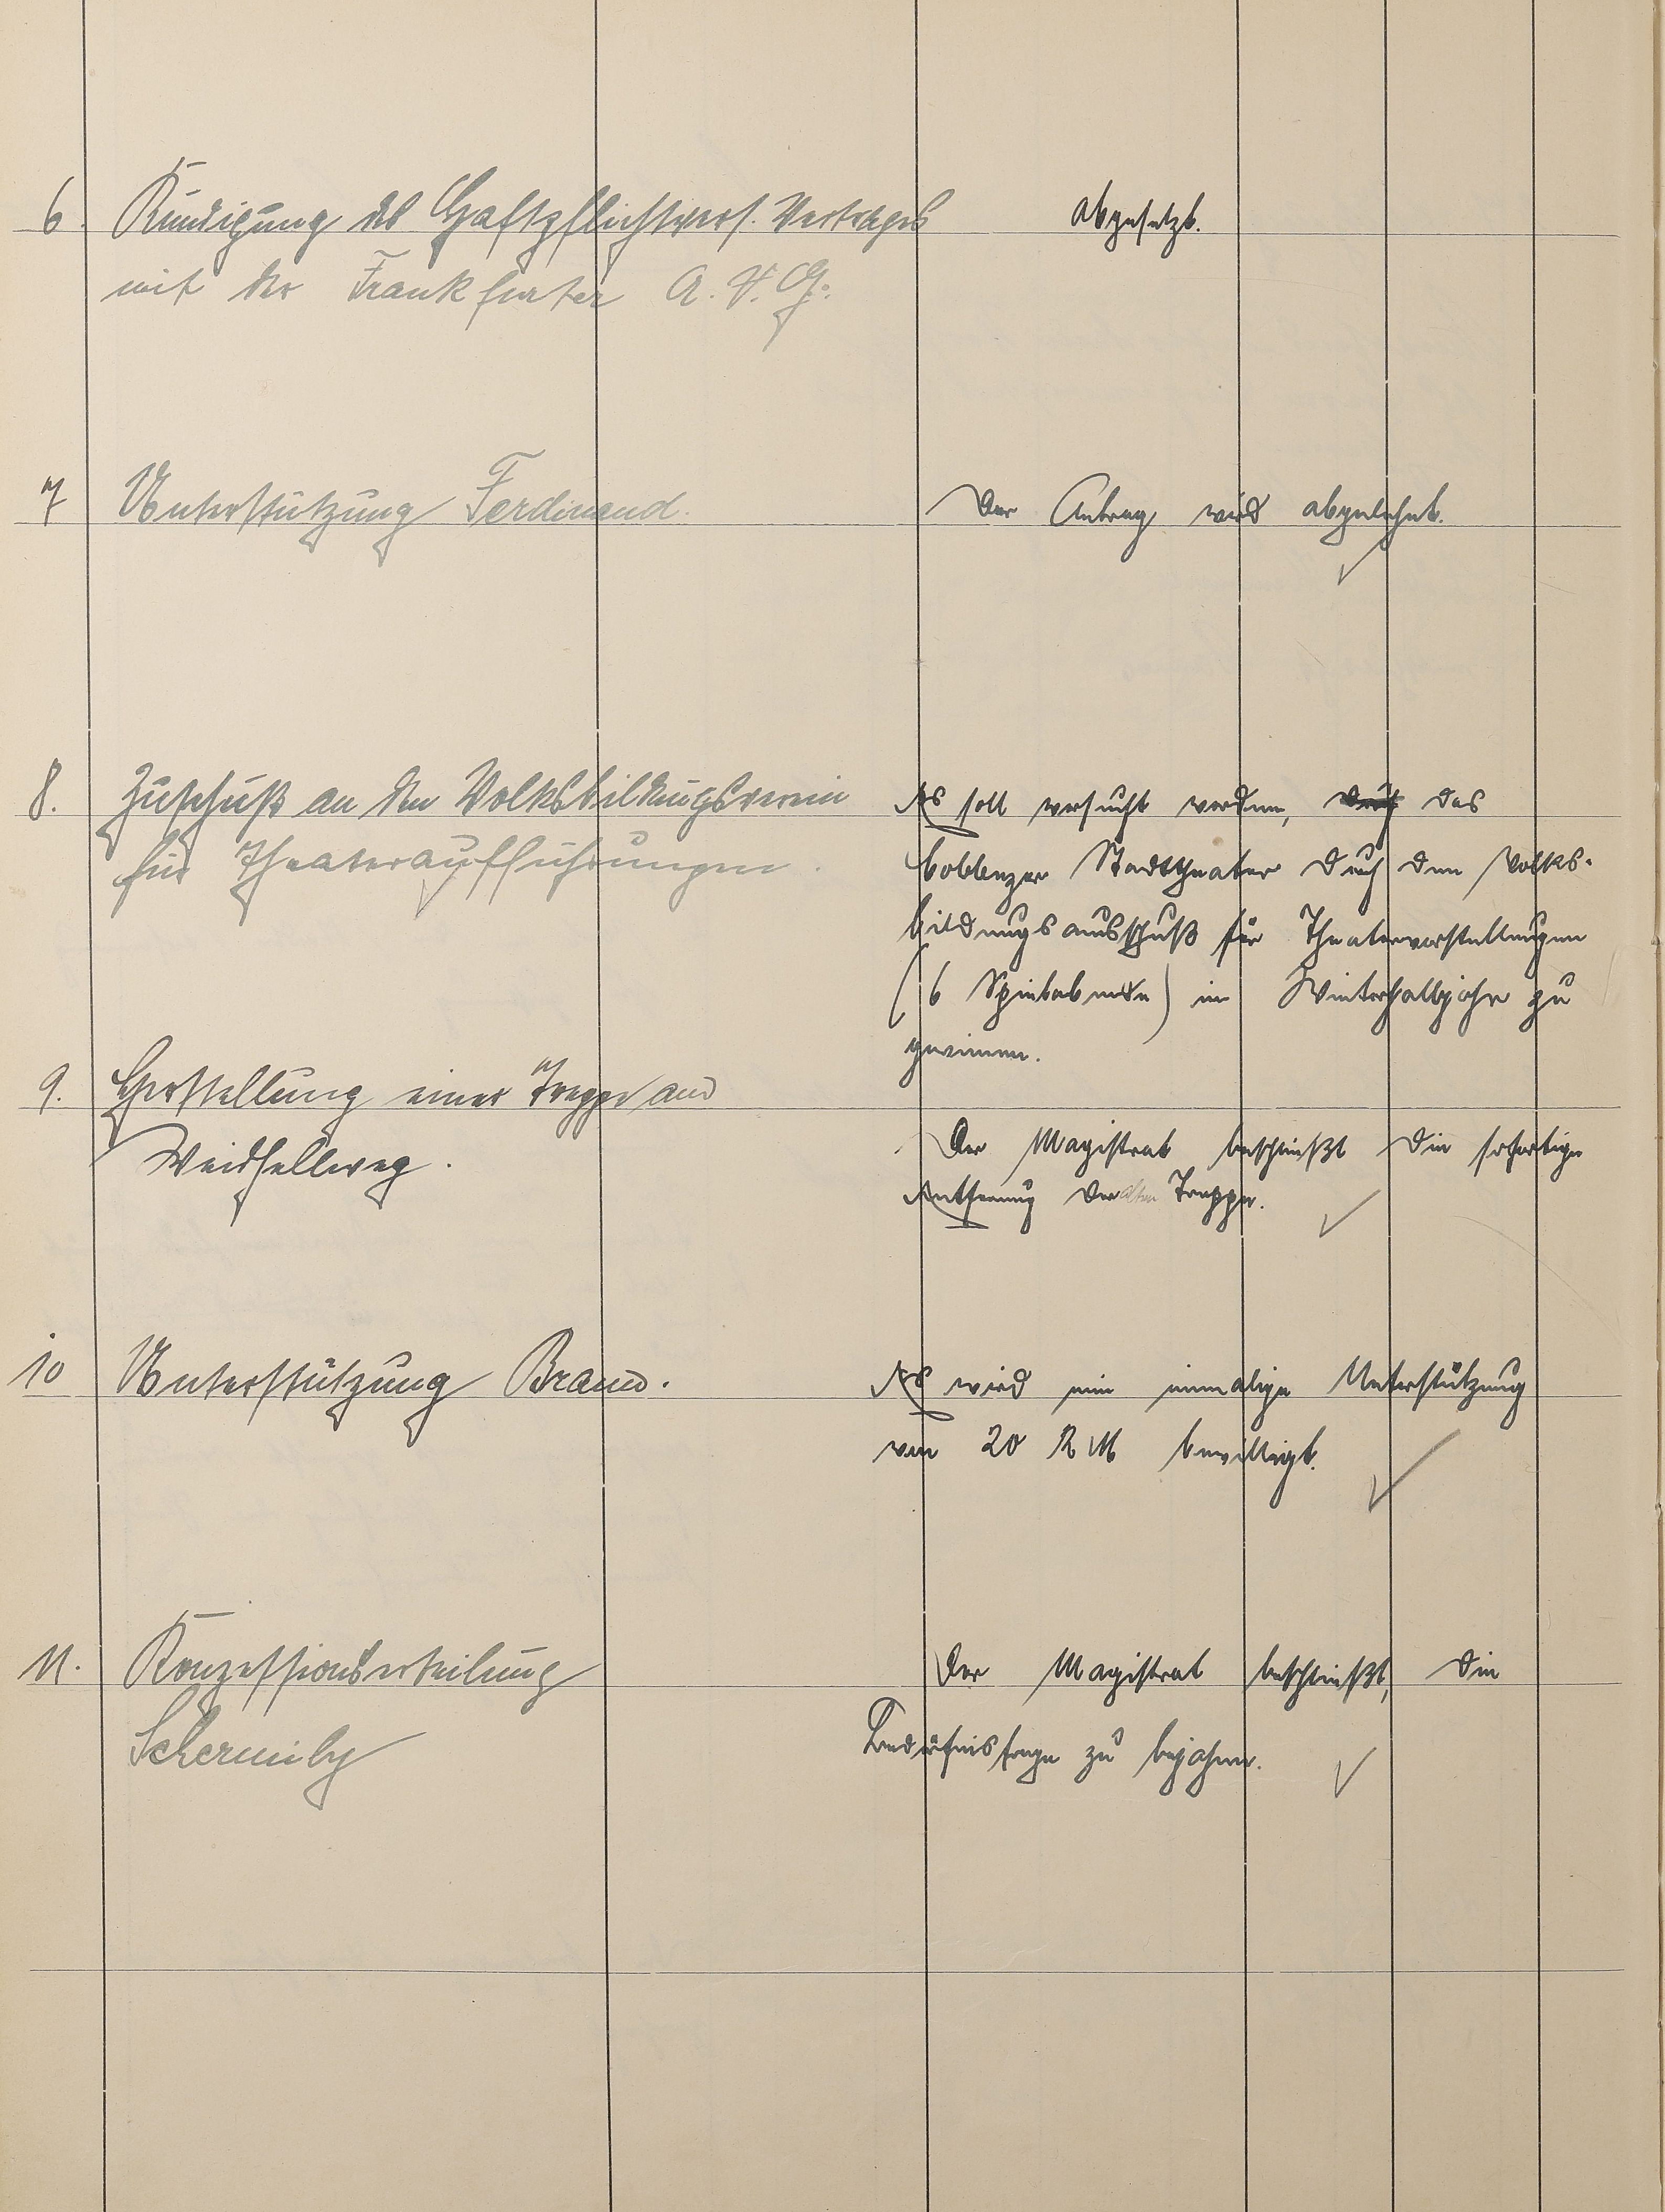 6. Kündigung des Haftpflichtvers. Vertrages
mit der Frankfurter A.V.G.
abgesetzt.
7 Unterstützung Ferdinand.
Der Antrag wird abgelehnt.
8. Zuschuß an den Volksbildungsverein
für Theateraufführungen.
Es soll versucht werden, durch das
Coblenzer Stadttheater durch den Volks-
bildungsausschuß für Theatervorstellungen
(6 Spielabende) im Winterhalbjahr zu
gewinnen.
9. Herstellung einer Treppe am
Weidhellweg.
Der Magistrat beschließt die sofortige
Entfernung der alten Treppe.
10 Unterstützung Braun.
Es wird eine einmalige Unterstützung
von 20 RM bewilligt.
11. Konzessionserteilung
Schermuly
Der Magistrat beschließt, die
Bedürfnisfrage zu bejahen.